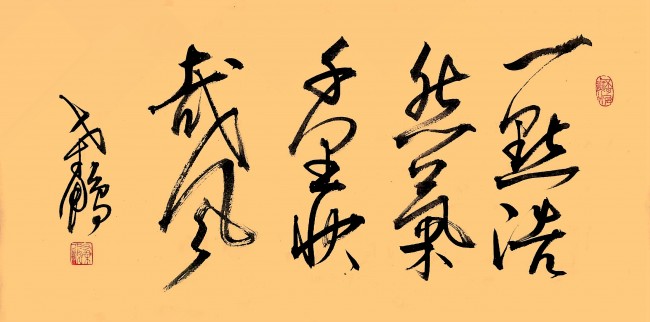 一點浩
然氣
千里快
哉風